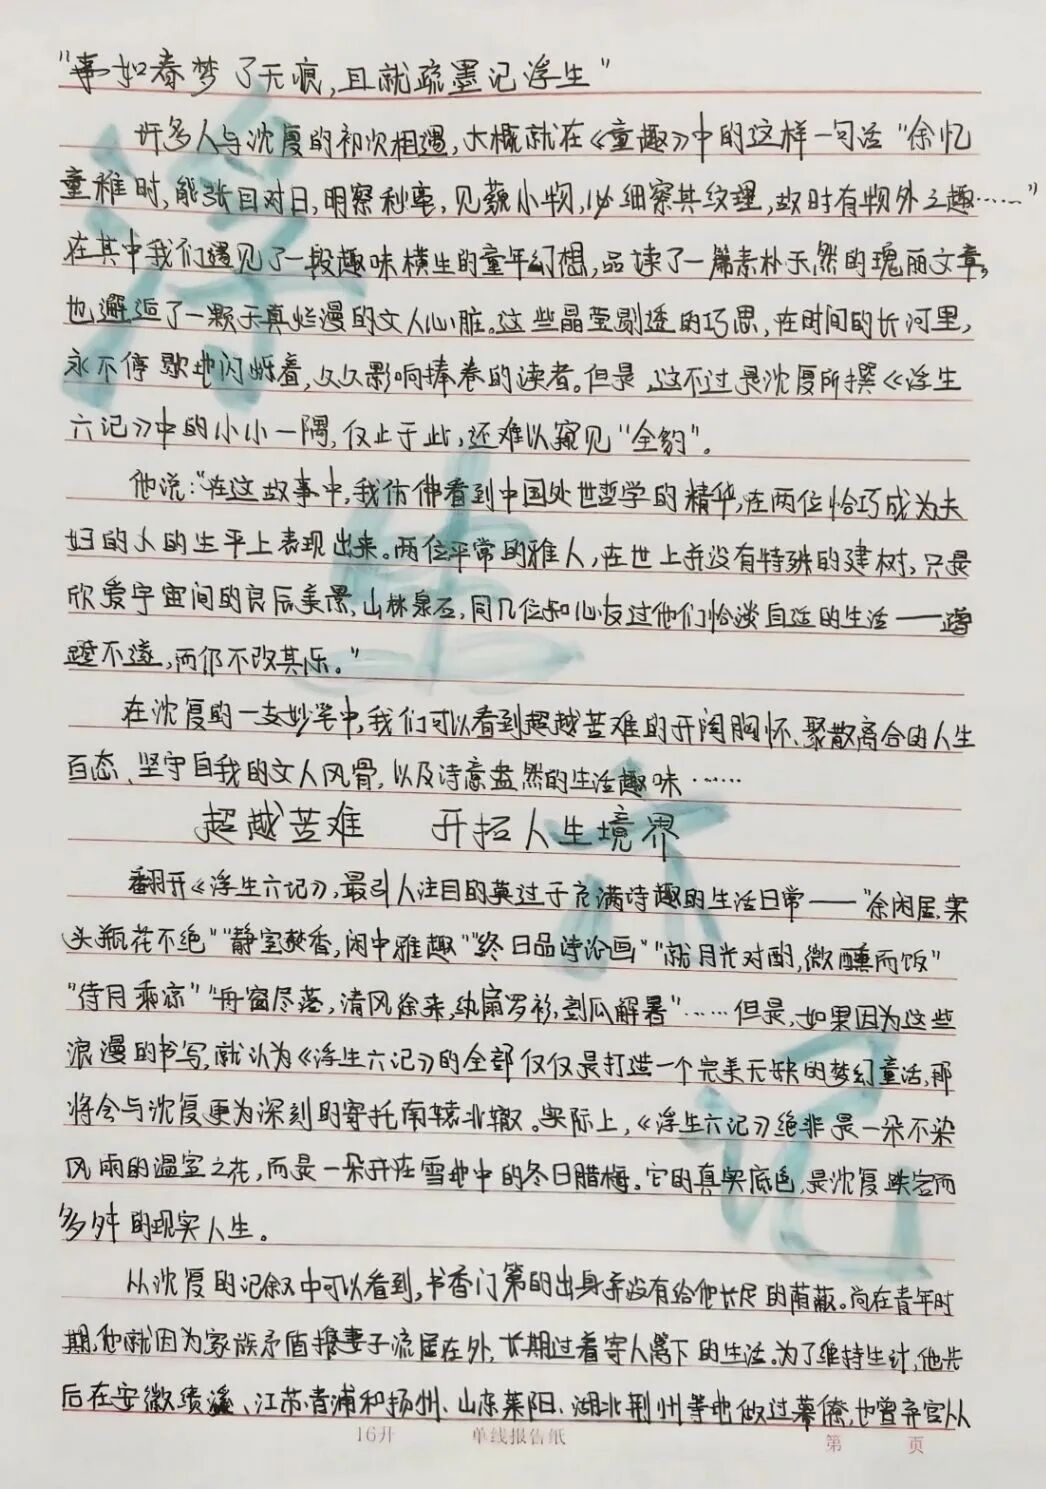 “事如春梦了无痕，且就疏墨记浮生”
许多人与沈复的初次相遇，大概就在《童趣》中的这样一句话“余忆
童稚时，能张目对日，明察秋毫，见藐小物，必细察其纹理，故时有物外之趣……”
在其中我们遇见了一段趣味横生的童年幻想，品读了一篇素朴天然的瑰丽文章，
也邂逅了一颗天真烂漫的文人心脏。这些晶莹剔透的巧思，在时间的长河里，
永不停歇地闪烁着，久久影响捧卷的读者。但是，这不过是沈复所撰《浮生
六记》中的小小一隅，仅止于此，还难以窥见“全豹”。
他说：“在这故事中，我仿佛看到中国处世哲学的精华，在两位恰巧成为夫
妇的人的生平上表现出来。两位平常的雅人，在世上并没有特殊的建树，只是
欣爱宇宙间的良辰美景，山林泉石，同几位知心友过他们恬淡自适的生活——蹭
蹬不遂，而仍不改其乐。”
在沈复的一支妙笔中，我们可以看到超越苦难的开阔胸怀、聚散离合的人生
百态、坚守自我的文人风骨，以及诗意盎然的生活趣味……
超越苦难 开拓人生境界
翻开《浮生六记》，最引人注目的莫过于充满诗趣的生活日常——“余闲居，案
头瓶花不绝”“静室焚香，闲中雅趣”“终日品诗论画”“就月光对酌，微醺而饭”
“待月乘凉”“舟窗尽落，清风徐来，纨扇罗衫，剖瓜解暑”……但是，如果因为这些
浪漫的书写，就认为《浮生六记》的全部仅仅是打造一个完美无缺的梦幻童话，那
将会与沈复更为深刻的寄托南辕北辙。实际上，《浮生六记》绝非是一朵不染
风雨的温室之花，而是一朵开在雪地中的冬日腊梅。它的真实底色，是沈复跌宕而
多舛的现实人生。
从沈复的记叙中可以看到，书香门第的出身并没有给他长足的荫蔽。尚在青年时
期，他就因为家族矛盾携妻子流居在外，长期过着寄人篱下的生活。为了维持生计，他先
后在安徽绩溪、江苏青浦和扬州、山东莱阳、湖北荆州等地做过幕僚，也曾弃官从
16开 单线报告纸 第 页
浮生六记